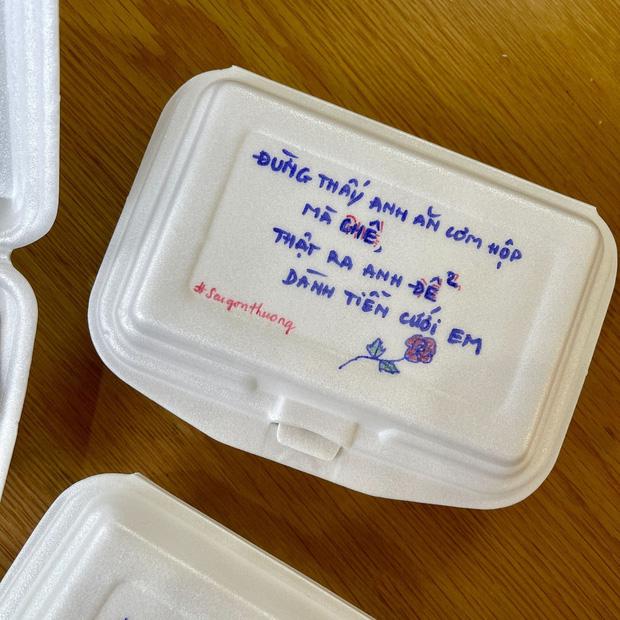 ĐỪNG THẤY ANH ĂN CƠM HỘP
MÀ CHÊ,
THẬT RA ANH ĐỂ²
DÀNH TIỀN CƯỚI EM
#Saigonthuong